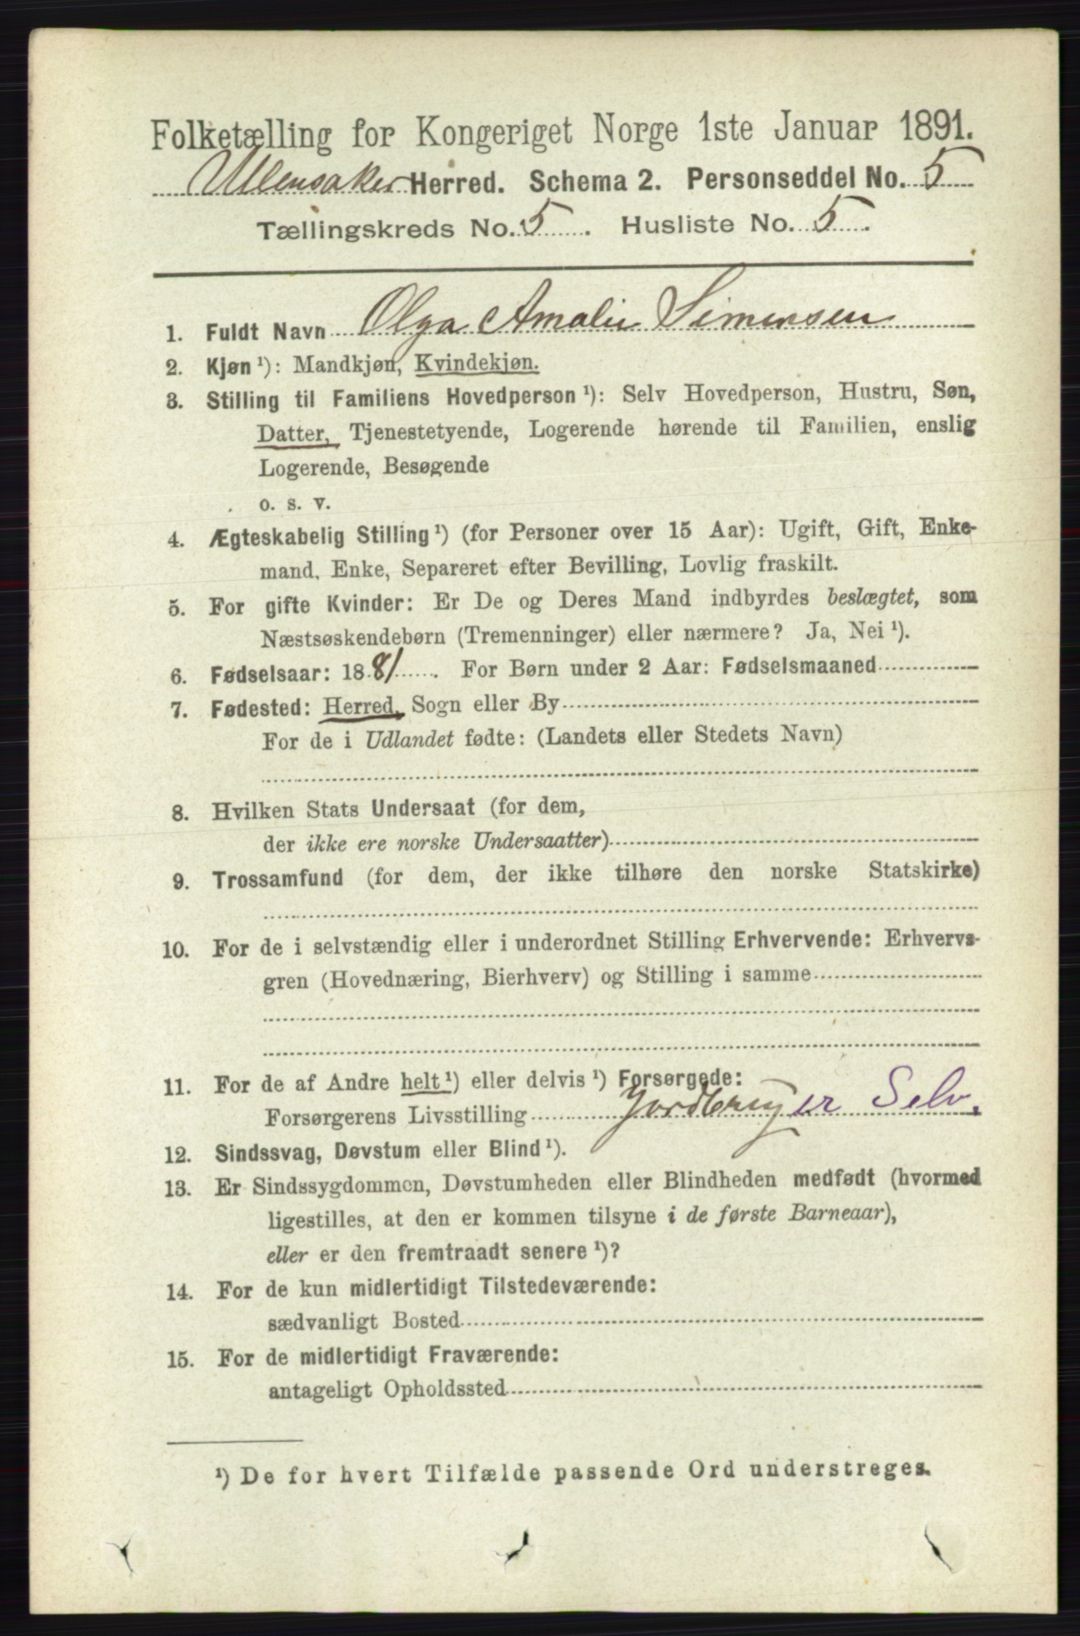 Folketælling for Kongeriget Norge 1ste Januar 1891.
Ullensaker Herred. Schema 2. Personseddel No. 5
Tællingskreds No. 5. Husliste No. 5.
1. Fuldt Navn Olga Amalie Simensen
2. Kjøn ¹): Mandkjøn, Kvindekjøn.
3. Stilling til Familiens Hovedperson ¹): Selv Hovedperson, Hustru, Søn,
Datter, Tjenestetyende, Logerende hørende til Familien, enslig
Logerende, Besøgende
o. s. v.
4. Ægteskabelig Stilling ¹) (for Personer over 15 Aar): Ugift, Gift, Enke-
mand, Enke, Separeret efter Bevilling, Lovlig fraskilt.
5. For gifte Kvinder: Er De og Deres Mand indbyrdes beslægtet, som
Næstsøskendebørn (Tremenninger) eller nærmere? Ja, Nei ¹).
6. Fødselsaar: 1881. For Børn under 2 Aar: Fødselsmaaned
7. Fødested: Herred, Sogn eller By
For de i Udlandet fødte: (Landets eller Stedets Navn)
8. Hvilken Stats Undersaat (for dem,
der ikke ere norske Undersaatter)
9. Trossamfund (for dem, der ikke tilhøre den norske Statskirke)
10. For de i selvstændig eller i underordnet Stilling Erhvervende: Erhvervs-
gren (Hovednæring, Bierhverv) og Stilling i samme
11. For de af Andre helt ¹) eller delvis ¹) Forsørgede:
Forsørgerens Livsstilling Jordbruger Selv.
12. Sindssvag, Døvstum eller Blind ¹).
13. Er Sindssygdommen, Døvstumheden eller Blindheden medfødt (hvormed
ligestilles, at den er kommen tilsyne i de første Barneaar),
eller er den fremtraadt senere ¹)?
14. For de kun midlertidigt Tilstedeværende:
sædvanligt Bosted
15. For de midlertidigt Fraværende:
antageligt Opholdssted
¹) De for hvert Tilfælde passende Ord understreges.